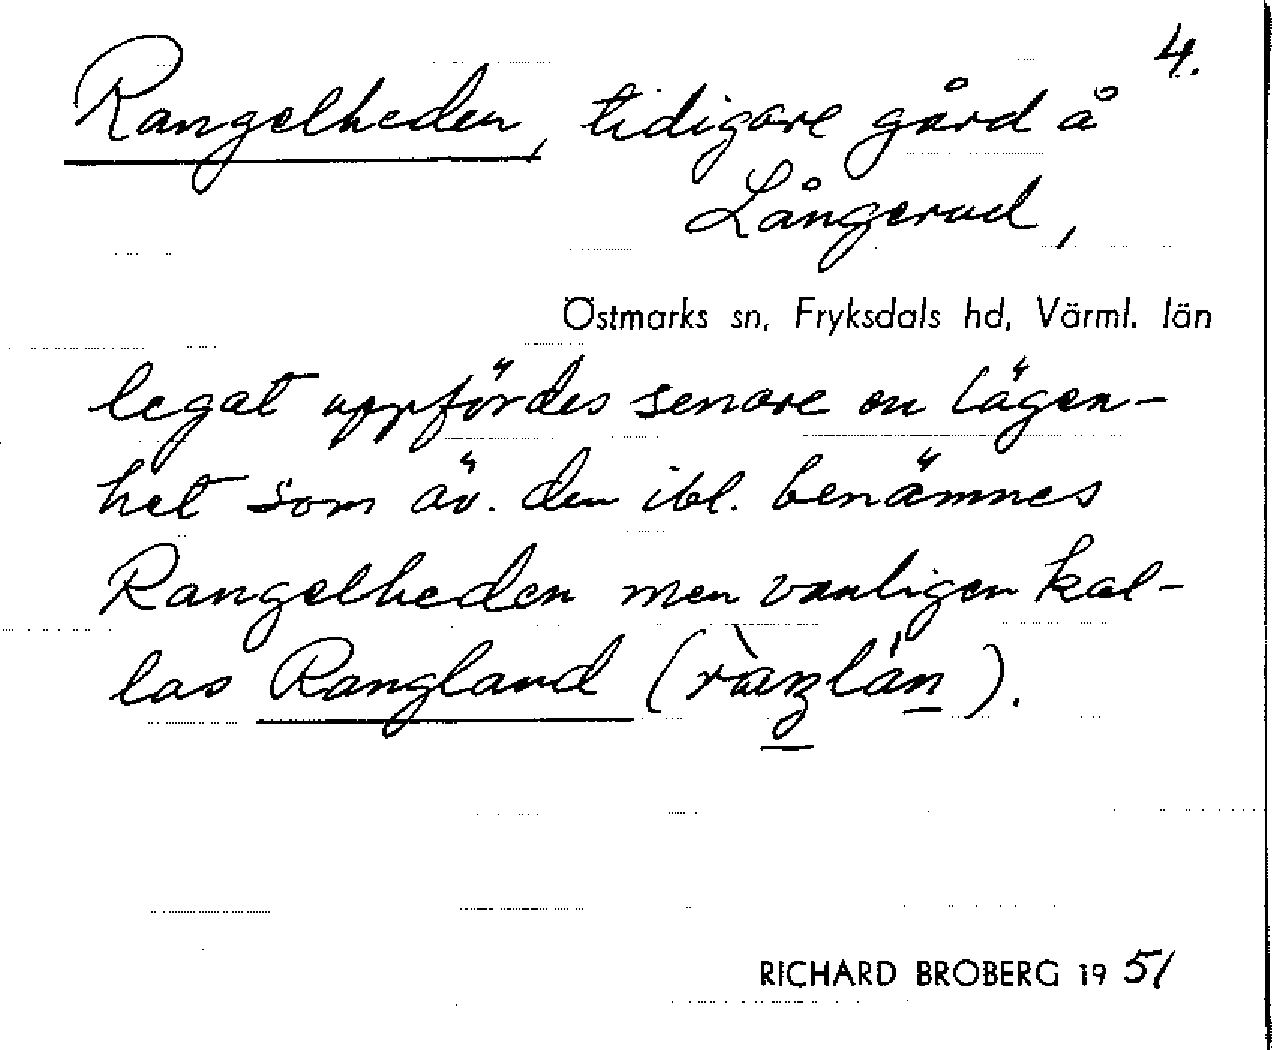 4.
Rangelheden, tidigare gård å
Långerud,
Östmarks sn, Fryksdals hd, Värml. län
legat uppfördes senare en lägen-
het som äv. den ibl. benämnes
Rangelheden men vanligen kal-
las Rangland (
RICHARD BROBERG 1951